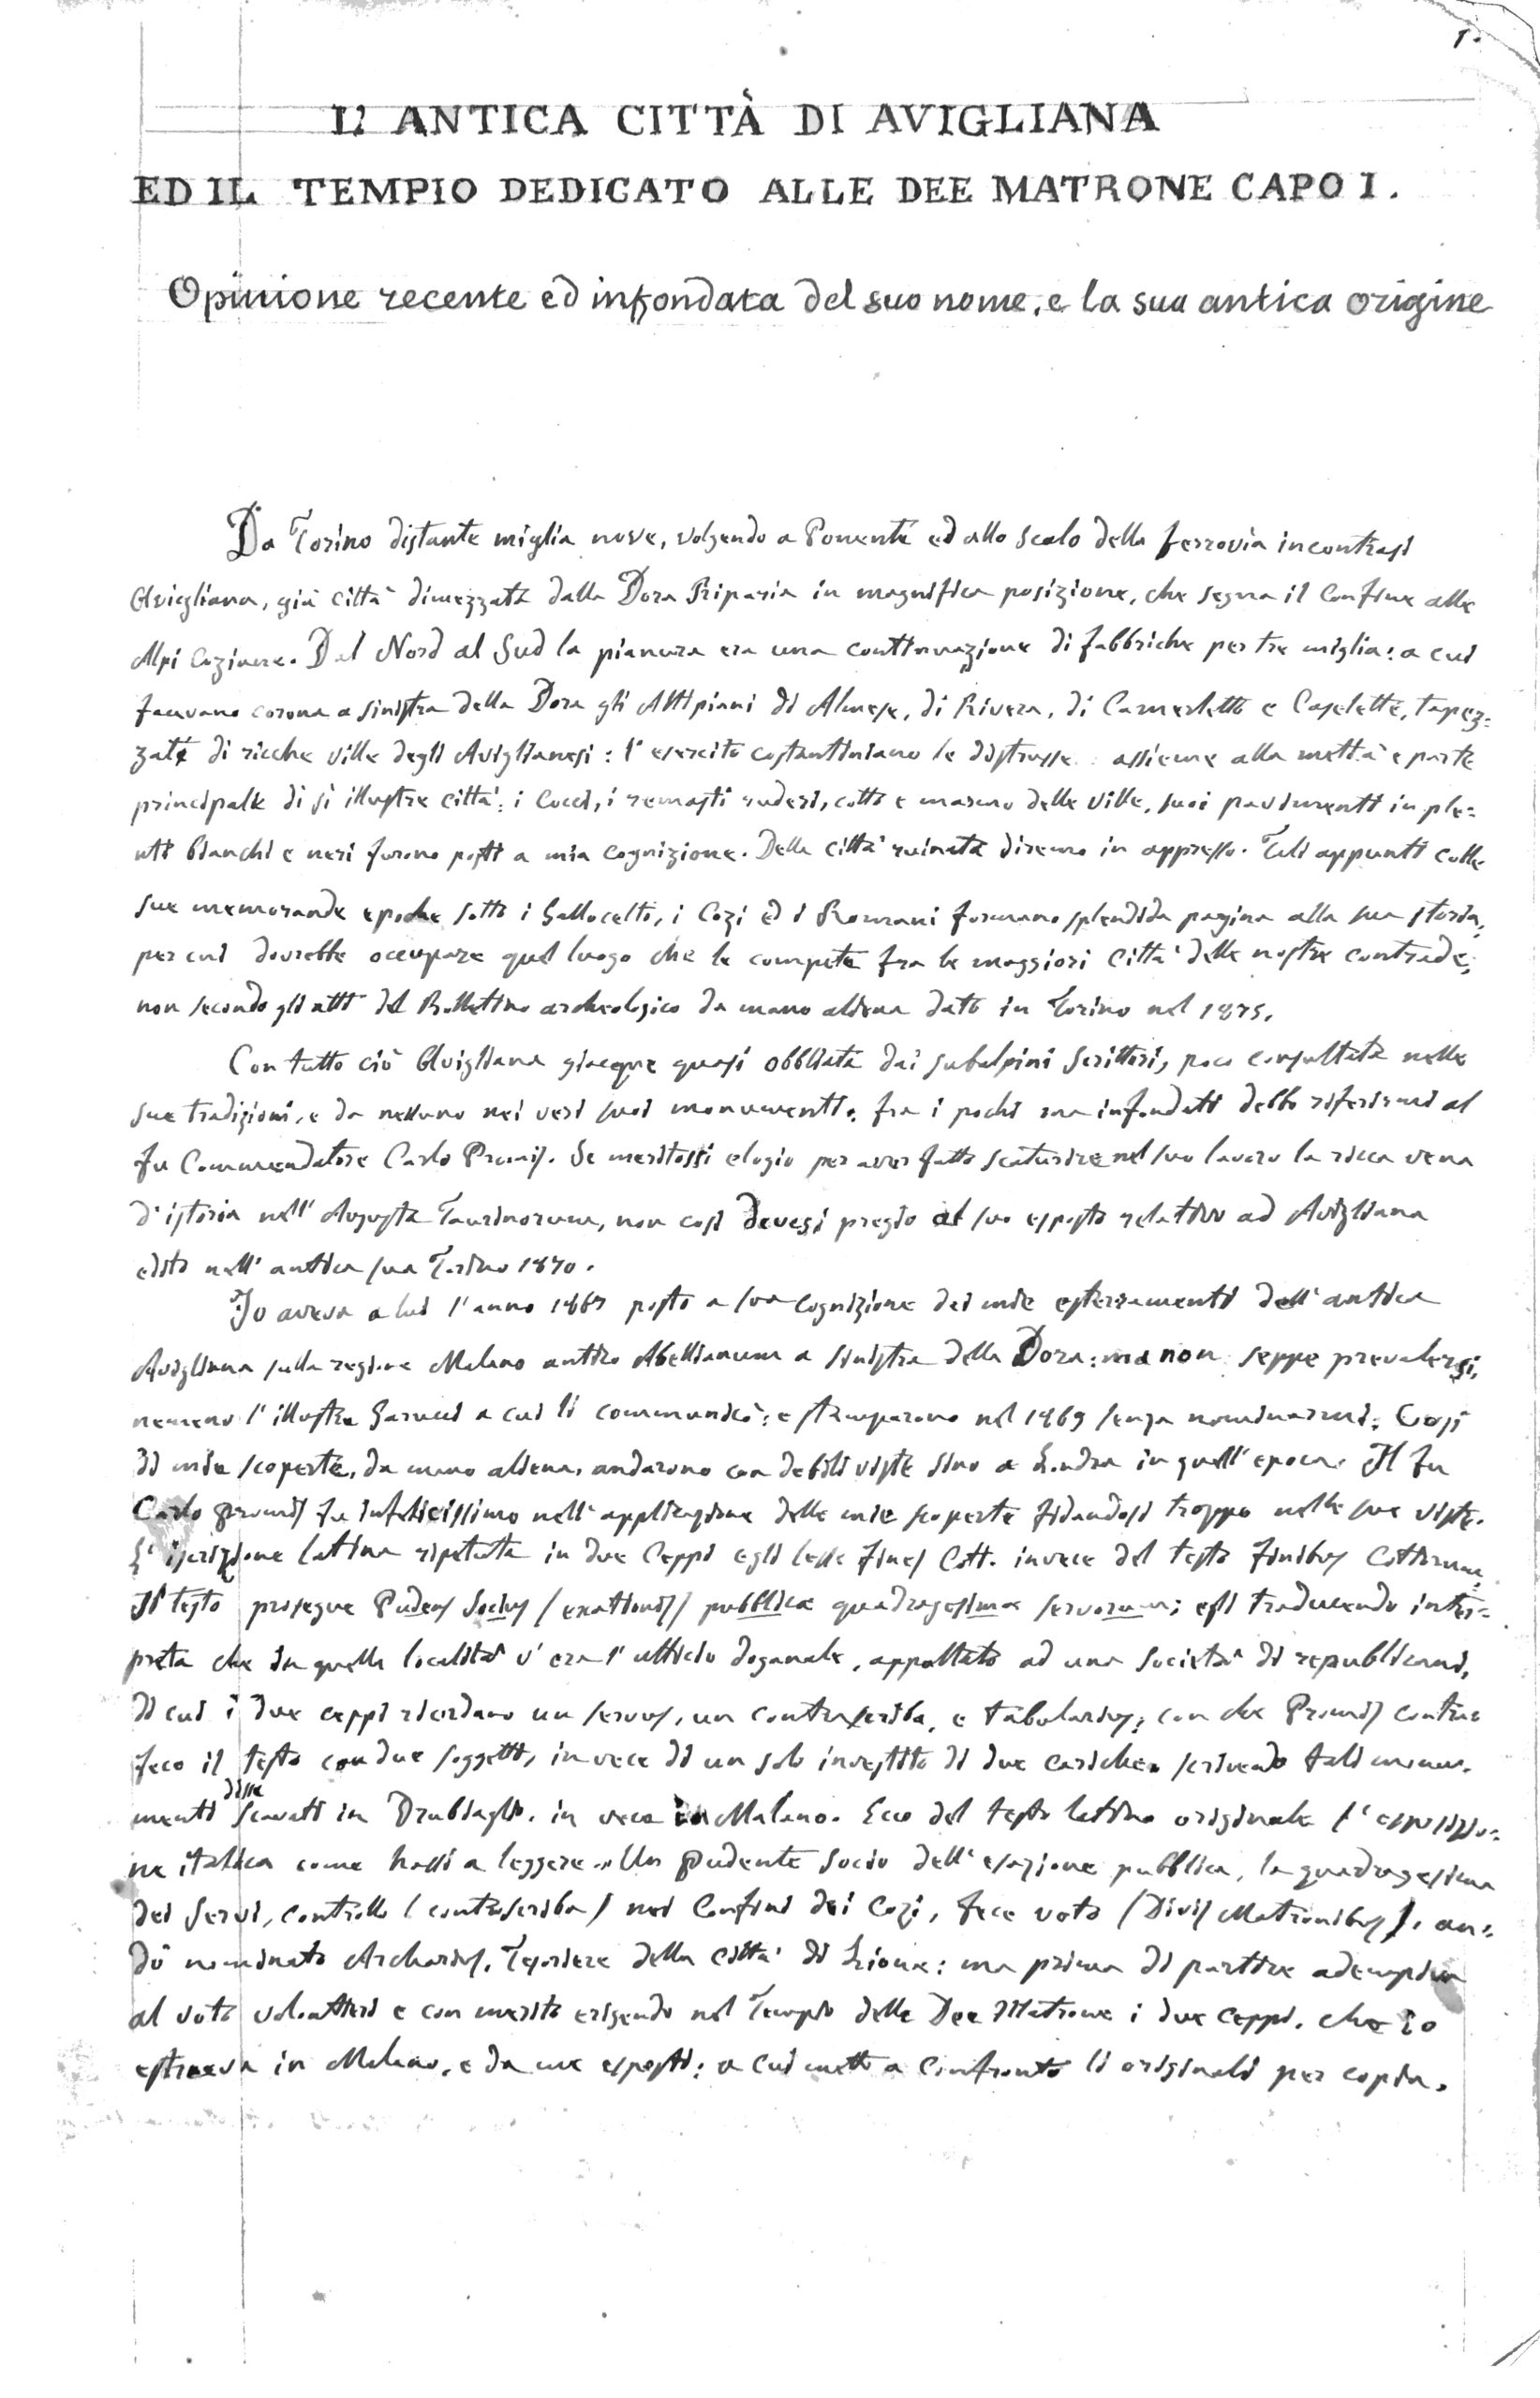 1.
L' ANTICA CITTÀ DI AVIGLIANA
ED IL TEMPIO DEDICATO ALLE DEE MATRONE CAPO I.
Opinione recente ed infondata del suo nome, e la sua antica origine
Da Torino distante miglia nove, volgendo a Ponente ed allo scalo della ferrovia incontrasi
Avigliana, già città dimezzata dalla Dora Riparia in magnifica posizione, che segna il Confine alle
Alpi Cozinere. Dal Nord al Sud la pianura era una continuazione di fabbriche per tre miglia: a cui
facevano corona a sinistra della Dora gli Altipiani di Almese, di Rivera, di Camerletto e Caselette, tapez=
zate di ricche ville degli Aviglianesi: l'esercito costantiniano le distrusse assieme alla mettà e parte
principale di sì illustre città: i Cocci, i remasti ruderi, cotto e marmo delle ville, suoi pavimenti in ple=
nti bianchi e neri furono posti a mia cognizione. Della città ruinata diremo in appresso. Tali appunti colle
sue memorande epoche sotto i Gallocelti, i Cozi ed i Romani formano splendida pagina alla sua storia,
per cui dovrebbe occupare quel luogo che le compete fra le maggiori Città delle nostre contrade;
non secondo gli atti del Bullettino archeologico da mano aliena dato in Torino nel 1875.
Con tutto ciò Avigliana giacque quasi obbliata dai subalpini Scrittori, poco consultata nelle
sue tradizioni, e da nessuno nei veri suoi monumenti: fra i pochi ma infondati debbo riferirmi al
fu Commendatore Carlo Promis. Se meritossi elogio per aver fatto scaturire nel suo lavoro la ricca vena
d'istoria nell' Augusta Taurinorum, non così devesi pregio al suo esposto relativo ad Avigliana
edito nell' antica sua Torino 1870.
Io aveva a lui l'anno 1867 posto a sua cognizione dei mie esterramenti dell' antica
Avigliana sulla regione Malano antico Abellianum a sinistra della Dora: ma non seppe prevalersi,
nemeno l'illustre Garucci a cui li communicò: e stamparono nel 1869 senza nominarmi. Così
di mie scoperte, da mano aliena, andarono con debili viste sino a Londra in quell' epoca. Il fu
Carlo Promis fu infelicissimo nell' applicazione delle mie scoperte fidandosi troppo nelle sue viste.
L' iscrizione latina ripetuta in due Ceppi egli lesse fines Cott. invece del testo finibus Cottiorum,
Il testo prosegue Pudens Socius (exationis) pubblicæ quadragesimæ servorum; egli traducendo inter=
preta che in quella località v' era l' ufficio doganale, appaltato ad una società di republicani,
di cui i due ceppi ricordano un servus, un contrascriba, e tabularius; con che Promis contra
feco il testo con due soggetti, invece di un solo investito di due cariche. scrivendo tali monu.
disse
menti scavati in Drubiaglio. in vece in Malano. Ecco del testo latino originale l' esposizio=
ne italica come hassi a leggere „ Un Pudente socio dell' esazione pubblica, la quadragesima
dei Servi, controllo (contrascriba) nei Confini dei Cozi, fece voto (Divis Matronibus), an=
dò nominato Archarius, Tesoriere della Città di Lione: ma prima di partire adempiva
al voto volontieri e con merito erigendo nel Tempio delle Dee Matrone i due ceppi, che io
estraeva in Malano, e da me esposti: a cui metto a Confronto li originali per copia.